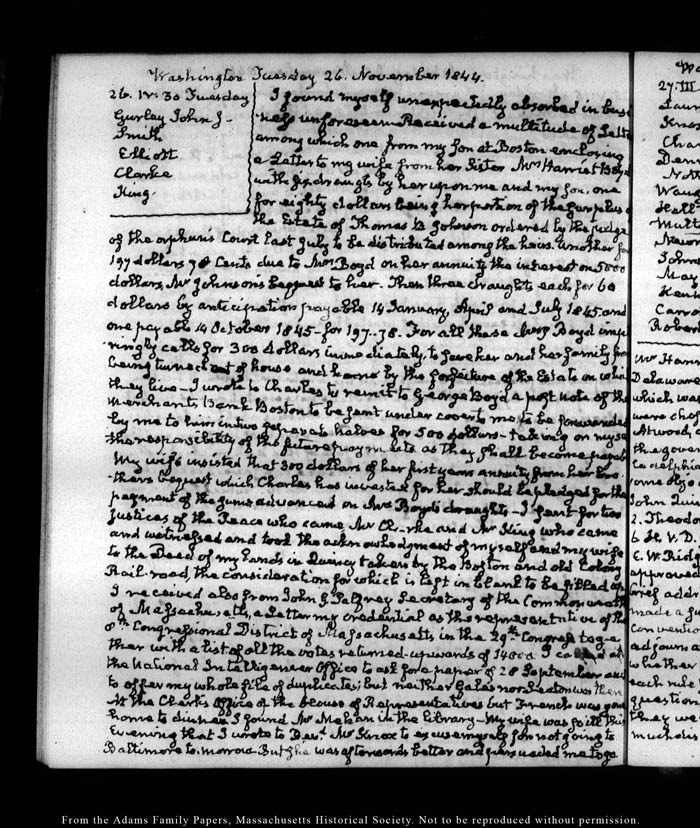 Washington Tuesday 26. November 1844.
26. IV:30 Tuesday
Gurley John J-
Smith
Elliott
Clarke
King-
I found myself unexpectedly absorbed in busi
ness unforeseen Received a multitude of Lette
among which one from my Son at Boston enclosing
a Letter to my wife from her Sister Mrs Harriet Boyd
with six draughts by her upon me and my Son. one
for eighty dollars being her portion of the surplus
the Estate of Thomas B Johnson ordered by the judge
of the orphan's Court last July to be distributed among the heirs. another for
197 dollars 78 Cents due to Mrs Boyd on her annuity the interest on 5000
dollars, Mr Johnson's bequest to her. Then three draughts each for 60
dollars by anticipation payable 14 January, April and July 1845 and
one payable 14 October 1845 - for 197..78. For all these Mrs Boyd imp
ringly calls for 300 dollars immediately, to save her and her family from
being turned out of house and home by the forfeiture of the Estate on which
they live - I wrote to Charles to remit to George Boyd a post note of the
Merchants Bank Boston to be sent under cover to me to be forwarded
by me to him in two separate halves for 500 dollars - taking on myse
the responsibility of the future payments as they shall become payable
My wife insisted that 300 dollars of her first years annuity from her bro
thers bequest which Charles has invested for her should be pledged for the
payment of the sums advanced on Mrs Boyd's draughts - I sent for two
Justices of the Peace who came Mr Clarke and Mr King who came
and witnessed and took the acknowledgment of myself and my wife
to the Deed of my Lands in Quincy taken by the Boston and old Colony
Rail-road, the consideration for which is left in blank to be filled up
I received also from John G Palfrey Secretary of the Commonwealth
of Massachusetts, a Letter my credential as the representative of the
8th Congressional District of Massachusetts in the 29th Congress toge
ther with a list of all the votes returned upwards of 14000. I called at
the National Intelligencer Office to ask for a paper of 28 September and
to offer my whole file of duplicates; but neither Gales nor Seaton was there
At the Clerk's Office of the house of Representatives but French was gone
home to dinner I found Mr Mehan in the Library - My wife was so ill this
Evening that I wrote to Devt Mr Knox to excuse myself for not going to
Baltimore to-morrow. But she was afterwards better and persuaded me to go
27. III
Mr Harri
Delaware
which was
were chos
Atwood,
the gover
John Quin
2. Theodo
6 St. V. D.
E. W. Ridg
approved
brief addr
made a
Convention
adjourn a
whether
each rule
question
they we
much dis
From the Adams Family Papers, Massachusetts Historical Society. Not to be reproduced without permission.